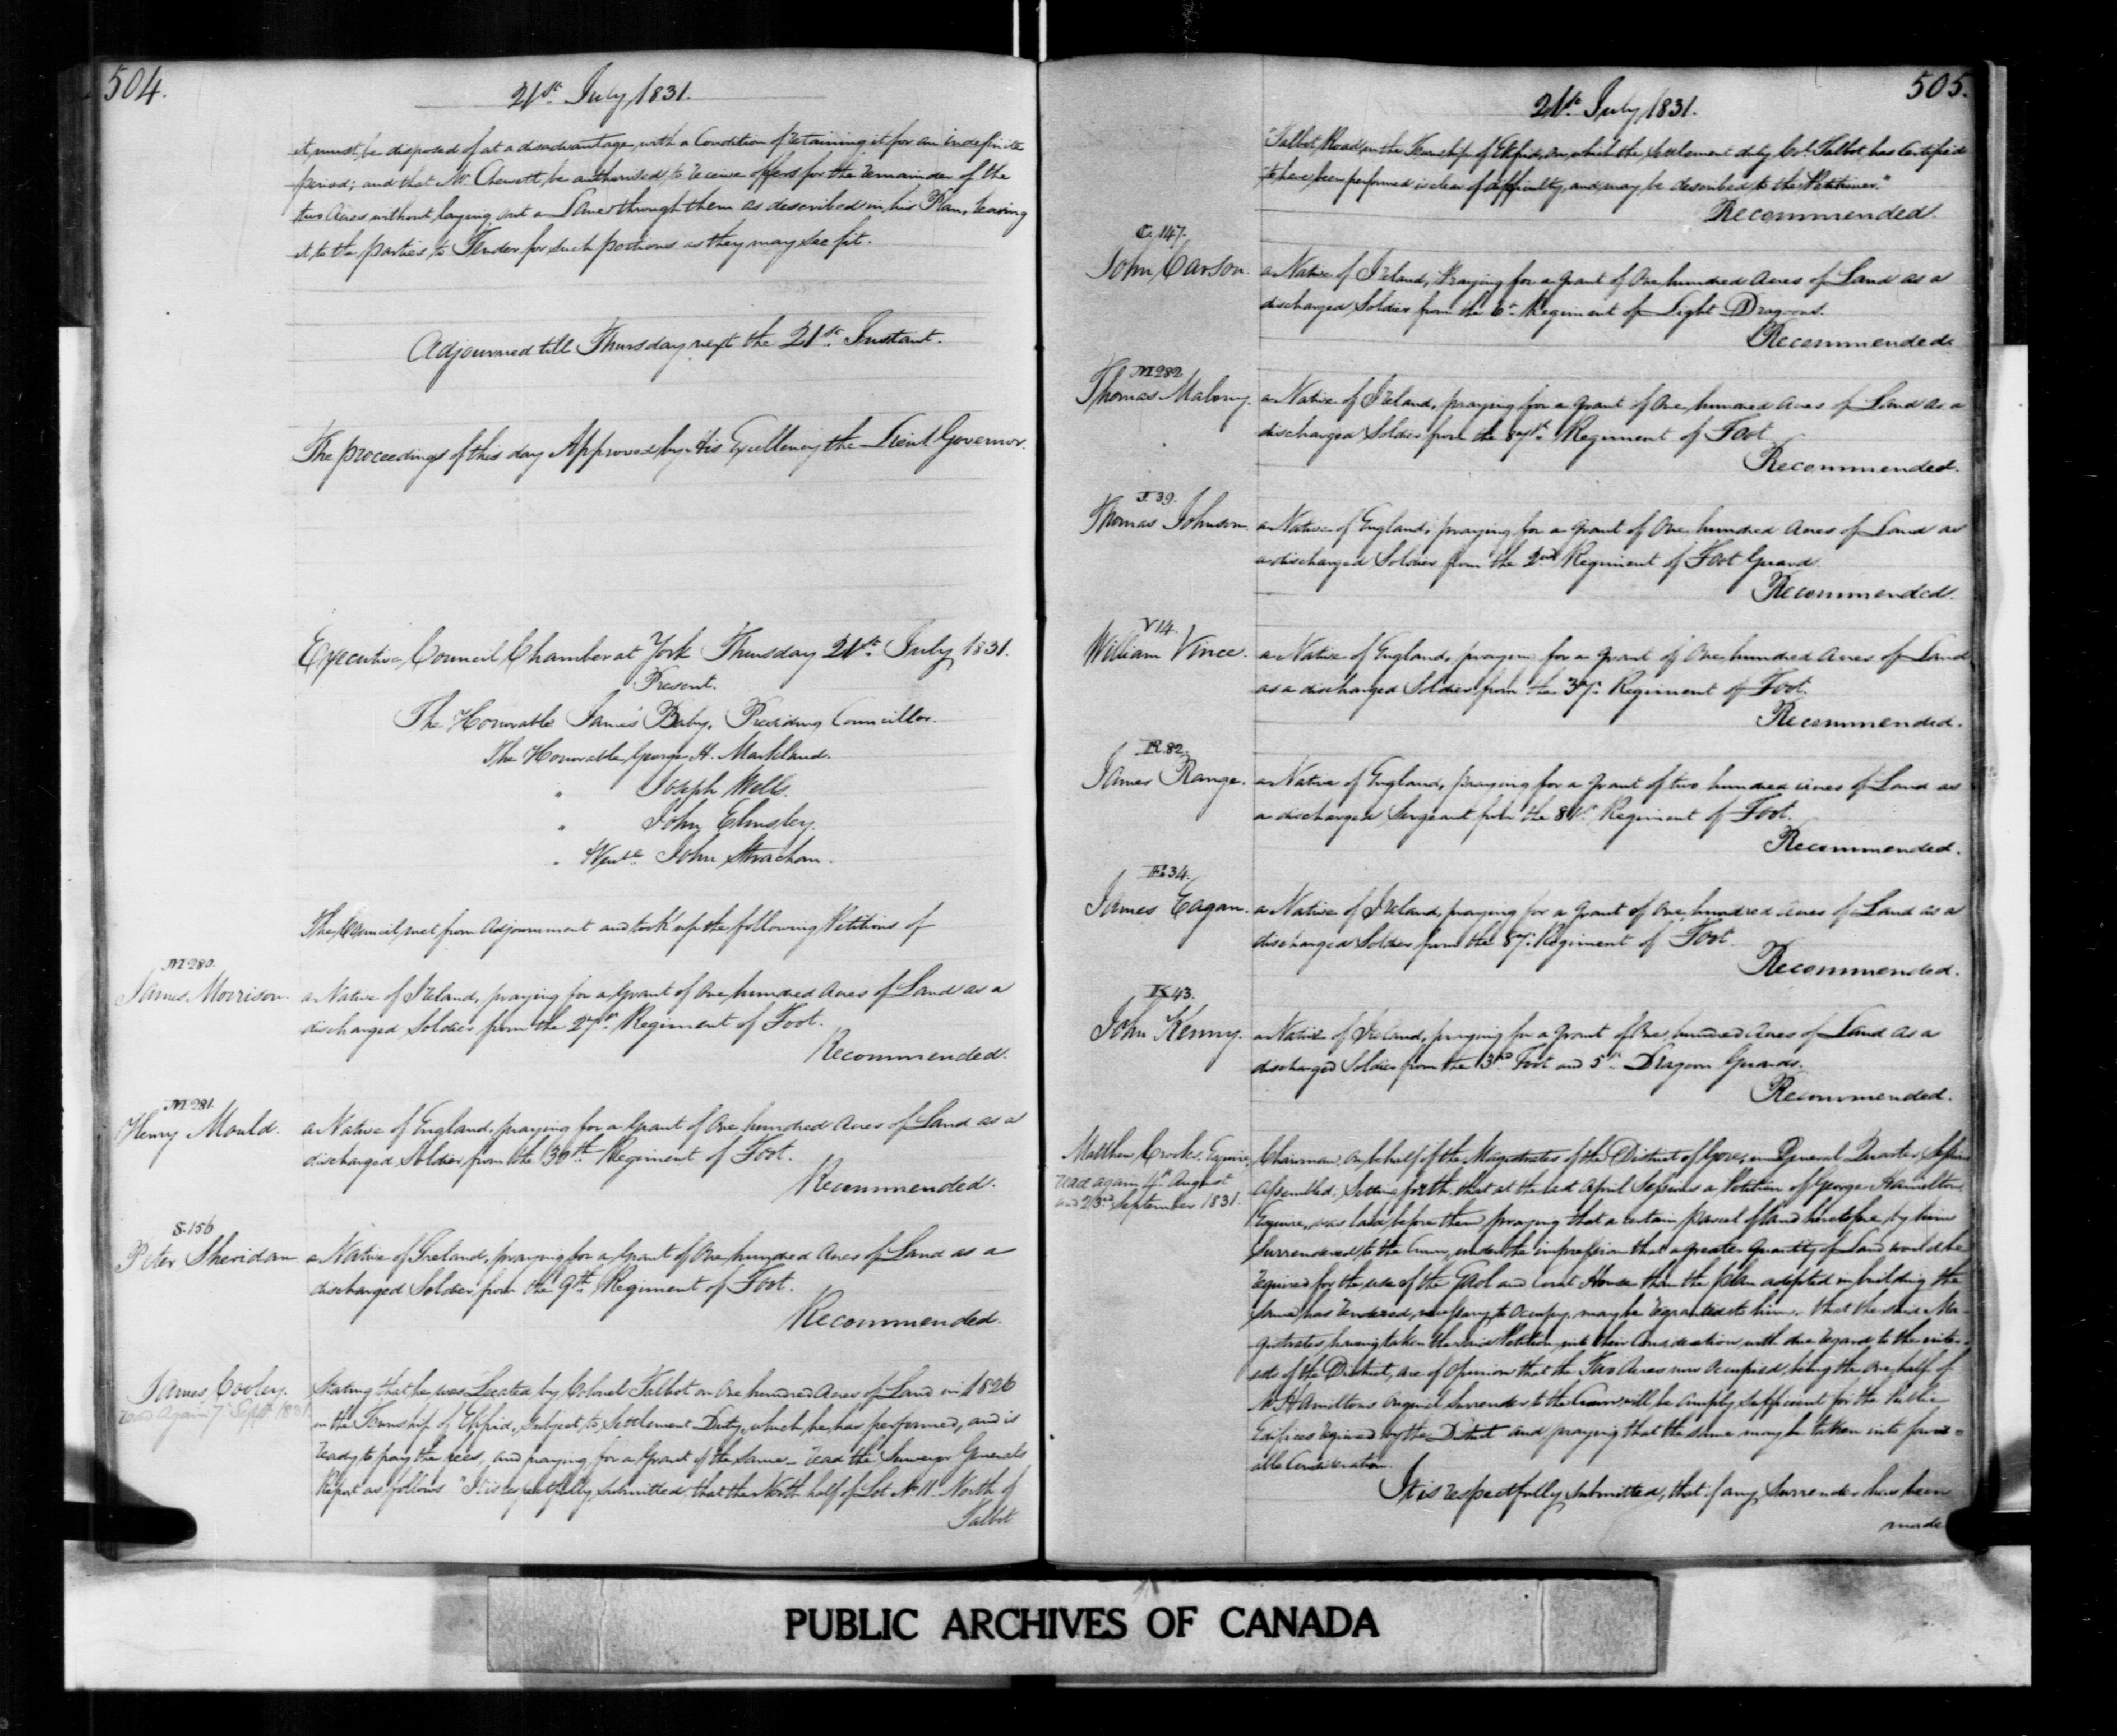 504.
21st July 1831.
it must be disposed of at a disadvantage, with a Condition of retaining it for an indefinite
period; and that Mr. Chewett be authorised to receive offers for the remainder of the
two Acres without laying out a Lane through them as described in his Plan, leaving
it to the parties to Tender for such portions as they may see fit.
Adjourned till Thursday next the 21st. Instant.
The proceedings of this day Approved by His Excellency the Lieut. Governor.
Executive Council Chamber at York Thursday 21st. July 1831.
Present.
The Honorable James Baby, Presiding Councillor.
The Honorable George H. Markland.
" Joseph Wells.
" John Elmsley.
" Venble John Strachan.
The Council met from Adjournment and took up the following Petitions of
M280.
James Morrison. a Native of Ireland, praying for a Grant of One hundred Acres of Land as a
discharged Soldier from the 27th. Regiment of Foot.
Recommended.
M281.
Henry Mould. a Native of England, praying for a Grant of One hundred Acres of Land as a
discharged Soldier from the 30th Regiment of Foot.
Recommended.
S.156
Peter Sheridan a Native of Ireland, praying for a Grant of One hundred Acres of Land as a
discharged Soldier from the 9th Regiment of Foot.
Recommended.
James Cooley. Stating that he was Located by Colonel Talbot on One hundred Acres of Land in 1826
read again 7 Sept 1831 in the Township of Ekfrid, subject to Settlement Duty, which he has performed, and is
ready to pay the fees, and praying for a Grant of the same – read the Surveyor Generals
Report as follows "It is respectfully submitted that the North half of Lot No 11 North of
Talbot
505.
21st. July 1831.
"Talbot Road in the Township of Ekfrid, on which the settlement duty Col. Talbot has Certified
"to have been performed is clear of difficulty, and may be described to the Petitioner."
Recommended.
C.147.
John Carson. a Native of Ireland, Praying for a grant of One hundred Acres of Land as a
discharged Soldier from the 6th Regiment of Light Dragoons.
Recommended.
M282
Thomas Malony. a Native of Ireland, praying for a grant of One hundred Acres of Land as a
discharged Soldier from the 87th. Regiment of Foot
Recommended.
J.39.
Thomas Johnson. a Native of England, praying for a grant of One hundred Acres of Land as
a discharged Soldier from the 2nd Regiment of Foot Guard.
Recommended.
V14.
William Vince. a Native of England, praying for a grant of One hundred Acres of Land
as a discharged Soldier from the 37. Regiment of Foot.
Recommended.
R.82.
James Range. a Native of England, praying for a grant of two hundred acres of Land as
a discharged Sergeant from the 81st. Regiment of Foot.
Recommended.
E.34.
James Eagan. a Native of Ireland, praying for a grant of One hundred Acres of Land as a
discharged Soldier from the 87. Regiment of Foot.
Recommended.
K43.
John Kenny. a Native of Ireland, praying for a grant of One hundred Acres of Land as a
discharged Soldier from the 3rd Foot and 5th Dragoon Guards.
Recommended.
Matthew Crooks Esquire, Chairman, on behalf of the Magistrates of the District of Gore, in General Quarter Sessions
read again 4th August assembled; Setting forth that at the last April Sessions a Petition of George Hamilton
and 23rd September 1831. Esquire, was laid before them, praying that a certain parcel of land heretofore by him
Surrendered to the Crown, under the impression that a greater quantity of Land would be
required for the use of the Gaol and Court House than the plan adopted in building the
same has rendered necessary to Occupy, may be regranted to him. that the said Ma-
gistrates having taken the said Petition into their Consideration, with due regard to the inter-
ests of the District, are of Opinion that the Two Acres now Occupied, being the one half of
Mr Hamiltons Original Surrender to the Crown, will be amply Sufficient for the Public
Edifices required by the District and praying that the same may be taken into favor=
able Consideration.
It is respectfully submitted, that if any Surrender has been
made
PUBLIC ARCHIVES OF CANADA